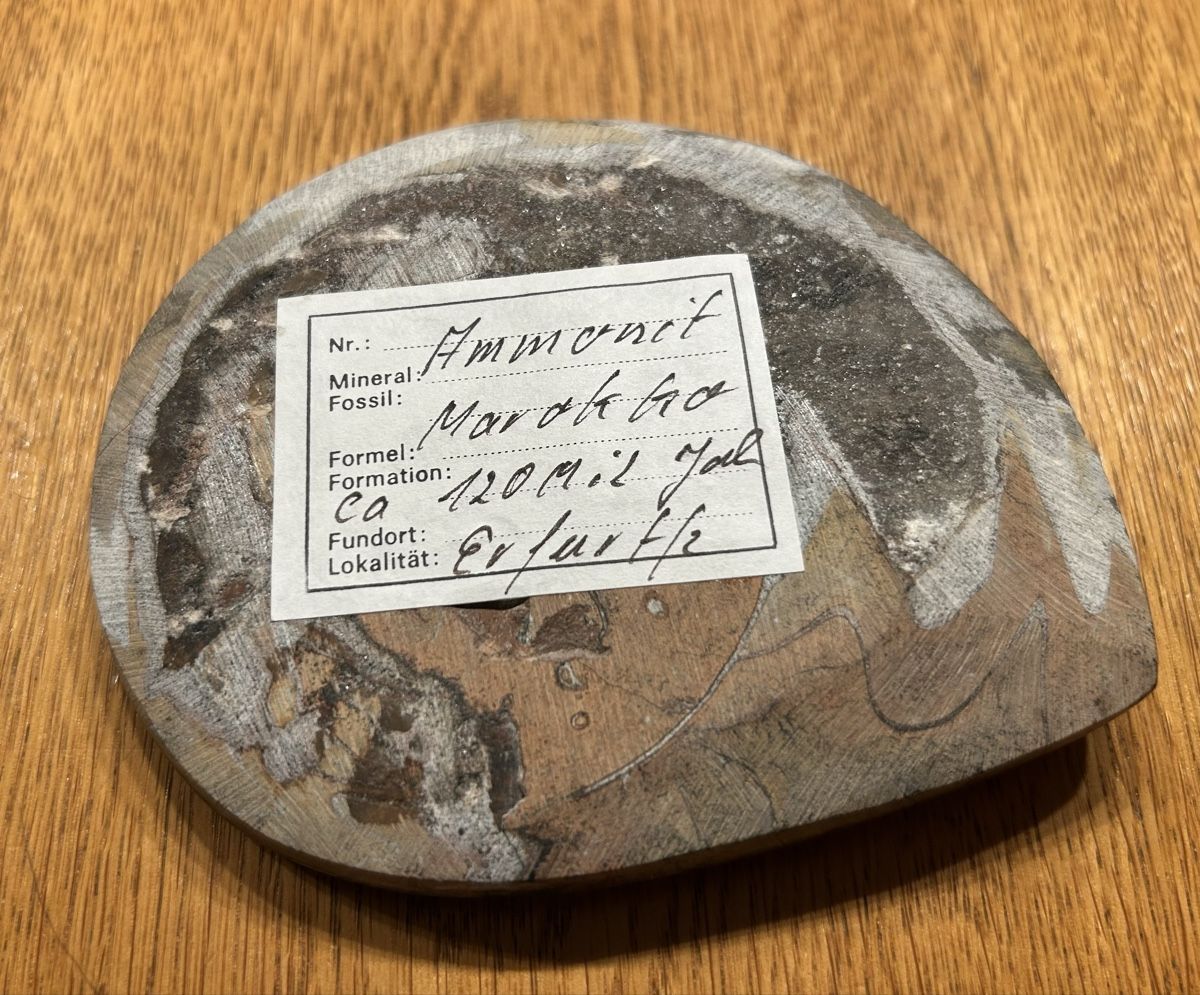 Nr.: Ammonit
Mineral:
Fossil:
Marokko
Formel:
Formation:
ca 120 Mil Jah
Fundort:
Lokalität: Erfurth